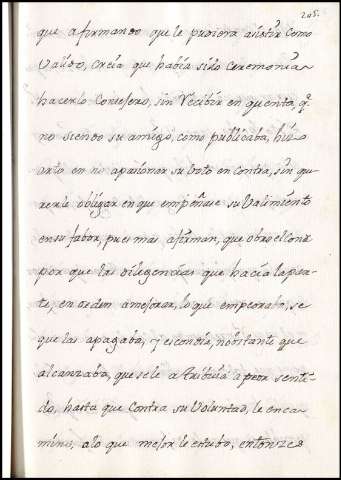 205.
que afirmando que le pudiera asistir como
Valido, creia que havia sido ceremonia
hacerlo Consejero, sin recibir en quenta, q.
no siendo su amigo, como publicaba, hizo
arto en no apasionar su voto en contra, sin que
rerle obligar en que empeñase su Valimiento
en su fabor, pues mas afirman, que obro el Con
por que las diligencias que hacia la par
te, en orden amejorar, lo que empeoraba, se
que las apagaba, y escondia, nobstante que
alcanzaba, que se le atribuia a peor senti-
do, hasta que Contra su Voluntad, le enca
mino, alo que mejor le estubo, entonzes